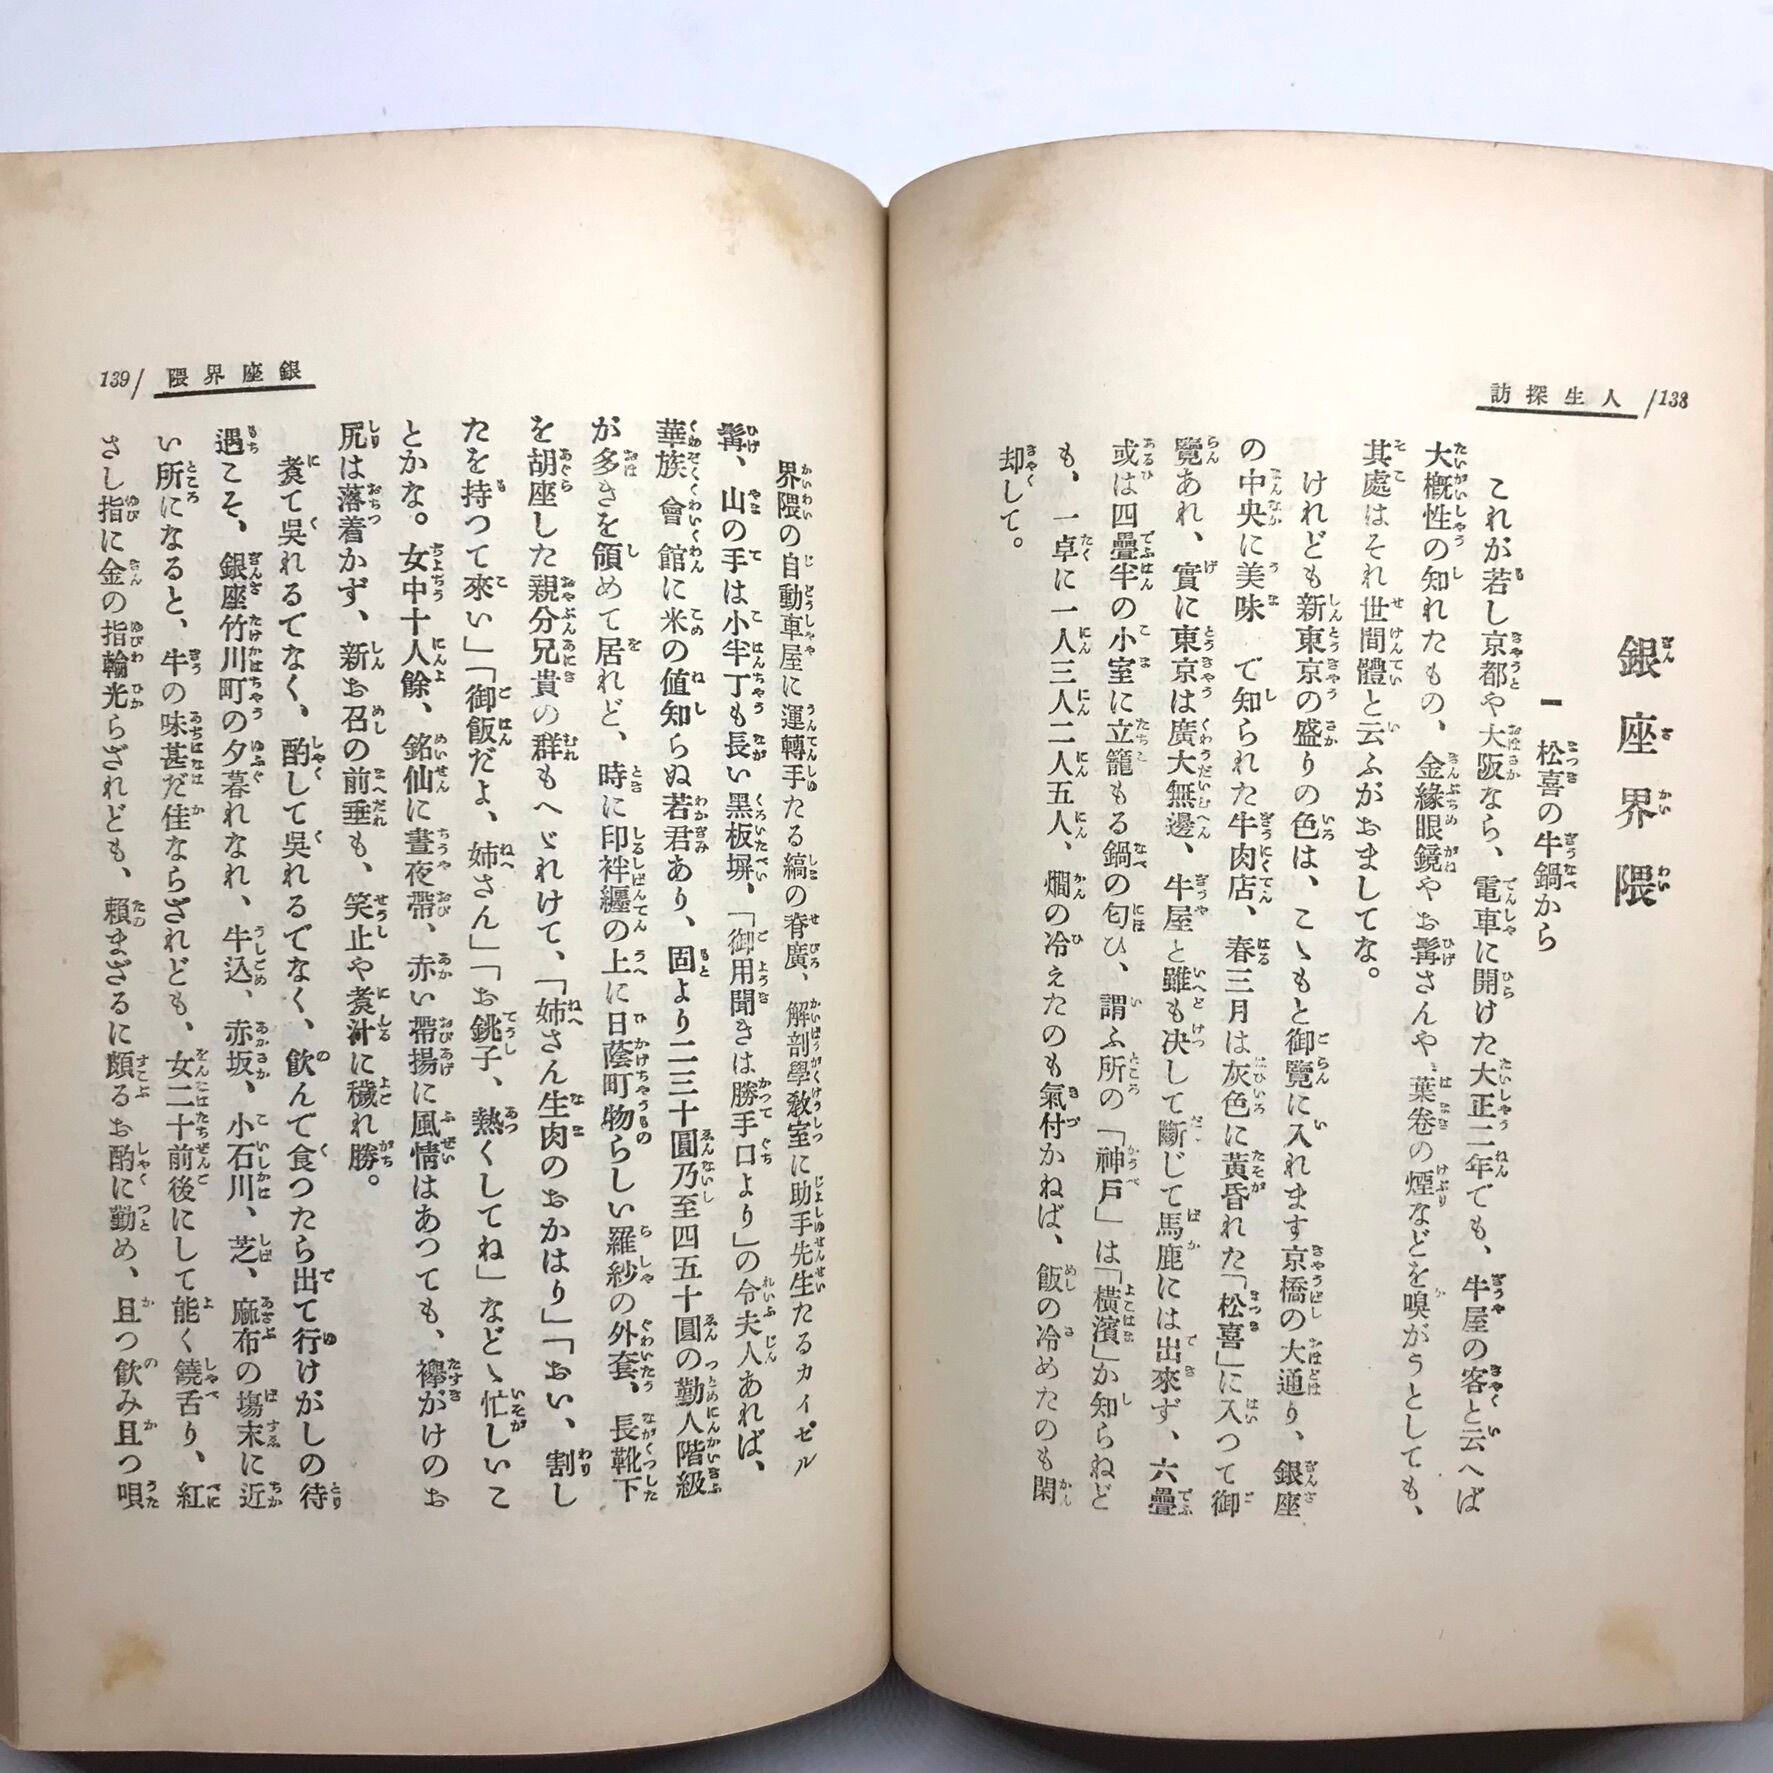 人生探訪 /138
銀座界隈
一 松喜の牛鍋から
これが若し京都や大阪なら、電車に開けた大正二年でも、牛屋の客と云へば
大槪性の知れたもの、金緣眼鏡やお髯さんや、葉卷の煙などを嗅がうとしても、
其處はそれ世間體と云ふがおましてな。
けれども新東京の盛りの色は、こゝもと御覽に入れます京橋の大通り、銀座
の中央に美味で知られた牛肉店、春三月は灰色に黃昏れた「松喜」に入つて御
覽あれ、實に東京は廣大無邊、牛屋と雖も决して斷じて馬鹿には出來ず、六疊
或は四疊半の小室に立籠もる鍋の匂ひ、謂ふ所の「神戶」は「橫濱」か知らねど
も、一卓に一人三人二人五人、燗の冷えたのも氣付かねば、飯の冷めたのも閑
却して。
139/ 銀座界隈
界隈の自動車屋に運轉手たる縞の脊廣、解剖學敎室に助手先生たるカイゼル
髯、山の手は小半丁も長い黑板塀、「御用聞きは勝手口より」の令夫人あれば、
華族會館に米の値知らぬ若君あり、固より二三十圓乃至四五十圓の勤人階級
が多きを領めて居れど、時に印袢纏の上に日蔭町物らしい羅紗の外套、長靴下
を胡座した親分兄貴の群もへゞれけて、「姉さん生肉のおかはり」「おい、割し
たを持つて來い」「御飯だよ、姉さん」「お銚子、熱くしてね」などゝ忙しいこ
とかな。女中十人餘、銘仙に晝夜帶、赤い帶揚に風情はあつても、襷がけのお
尻は落着かず、新お召の前垂も、笑止や煑汁に穢れ勝。
煑て吳れるでなく、酌して吳れるでなく、飮んで食つたら出て行けがしの待
遇こそ、銀座竹川町の夕暮れなれ、牛込、赤坂、小石川、芝、麻布の塲末に近
い所になると、牛の味甚だ佳ならざれども、女二十前後にして能く饒舌り、紅
さし指に金の指輪光らざれども、賴まざるに頗るお酌に勤め、且つ飮み且つ唄